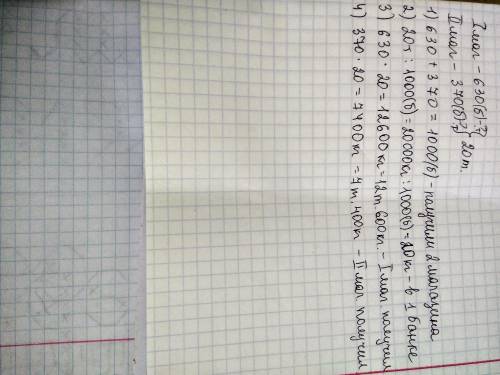 I маг – 630(б)-?
II маг – 370(б)-? } 20т.
1) 630 + 370 = 1000(б) – получили 2 магазина
2) 20т : 1000(б) = 20000кг : 1000(б) = 20 кг – в 1 банке
3) 630 · 20 = 12600кг = 12т. 600кг. – I маг. получил
4) 370 · 20 = 7400кг = 7т. 400кг – II маг получил